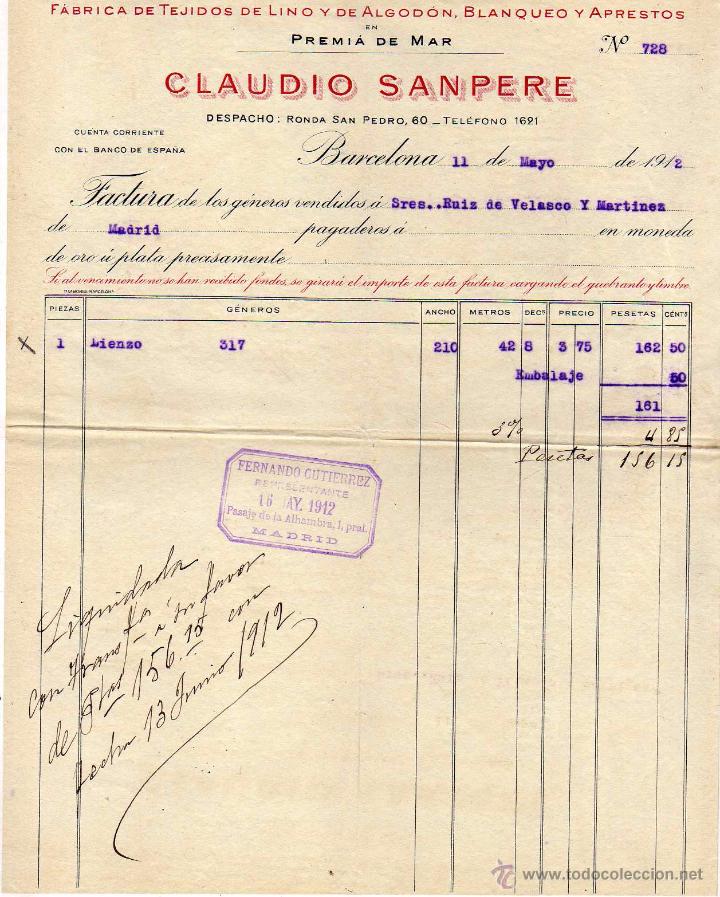 FÁBRICA DE TEJIDOS DE LINO Y DE ALGODÓN, BLANQUEO Y APRESTOS
EN
PREMIÁ DE MAR
Nº 728
CLAUDIO SANPERE
DESPACHO: RONDA SAN PEDRO, 60 _ TELÉFONO 1621
CUENTA CORRIENTE
CON EL BANCO DE ESPAÑA
Barcelona 11 de Mayo de 1912
Factura de los géneros vendidos á Sres..Ruiz de Velasco Y Martinez
de Madrid pagaderos á en moneda
de oro ú plata precisamente
Si al vencimiento no se han recibido fondos, se girará el importe de esta factura cargando el quebranto y timbre
PIEZAS GÉNEROS ANCHO METROS DECS PRECIO PESETAS CÉNTS
1 Lienzo 317 210 42 8 3 75 162 50
Embalaje 50
161
3% 4 85
Pesetas 156 15
FERNANDO GUTIERREZ
REPRESENTANTE
16 MAY. 1912
Pasaje de la Alhambra, 1, pral.
MADRID
Liquidada
con transfa a su favor
de Ptas 156.15 con
fecha 13 Junio 1912
todocoleccion
www.todocoleccion.net